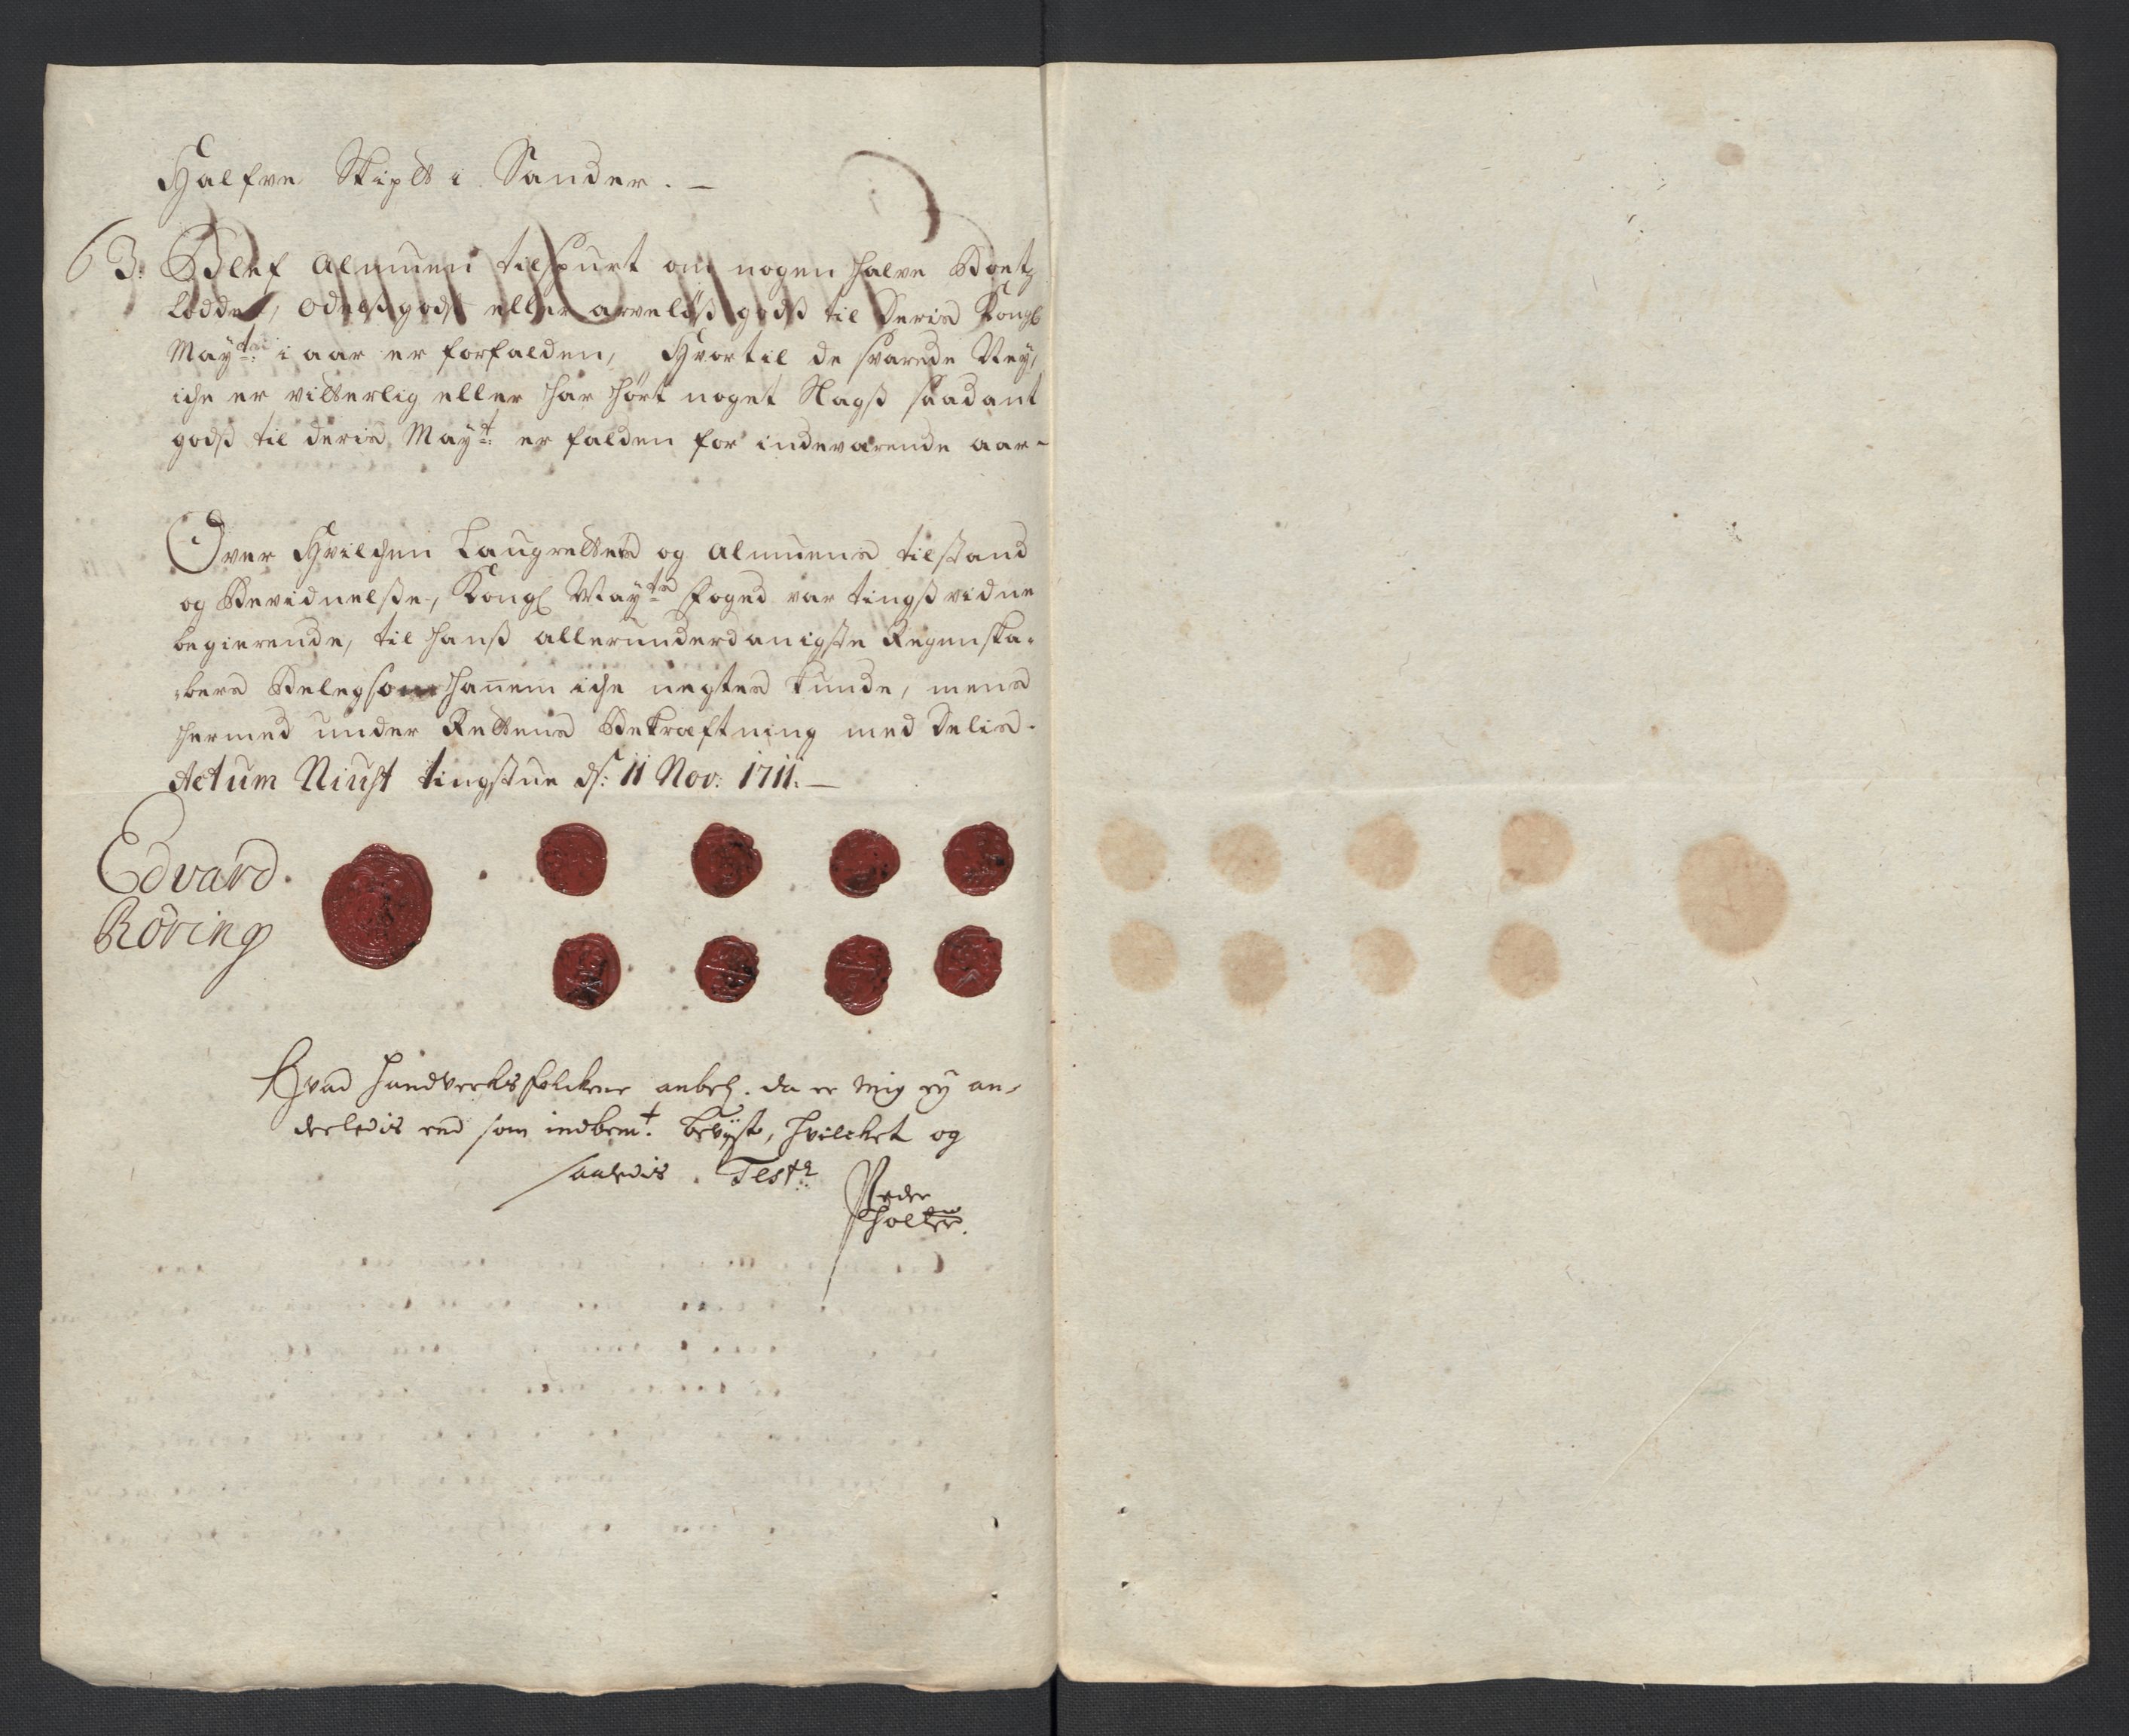 Halfve Skipt i Sander. —
63. Blef Almuen tilspurt om nogen halve Boets
Lodder, Odelsgods eller arveløß godß til Deris Kongl
Mayt: i aar er forfalden, Hvortil de svarede Ney,
iche er vitterlig eller har hørt noget Slags saadant
godß til deris Mayt: er falden for indeværende aar -
Over Hvilchen Laugrettes og Almuens tilstand
og Bevidnelße, Kongl Mayts Foged var tingßvidne
begierende, til hanß allerunderdanigste Regenska-
-bers Beleg som hanem iche negtes kunde, mens
hermed under Rettens Bekræftning med Delis.
Actum Niust tingstue ds: 11 Nov: 1711. —
Edvard
Röring
Hvad Handverksfolckene anbel. da er mig ey an-
derledis end som indbemt. bevist, hvilcket og
saaledis Test:
Peder
Holter.